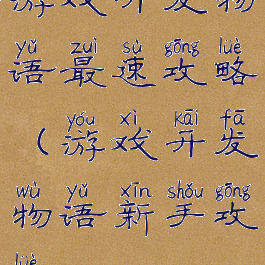 游戏开发物
yǔ zuì sù gōng lüè
语最速攻略
yóu xì kāi fā
（游戏开发
wù yǔ xīn shǒu gōng
物语新手攻
lüè